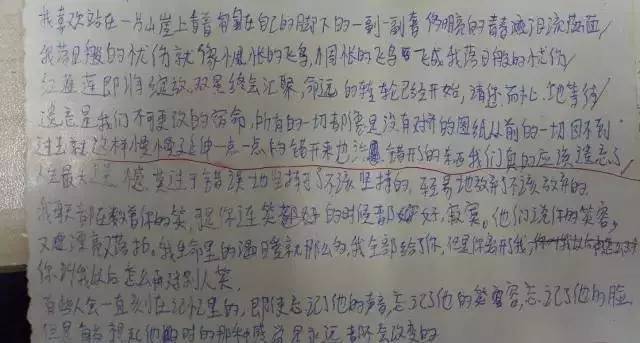 我喜欢站在一片山崖上看着匍匐在自己的脚下的一副一副奢侈明亮的青春泪流满面
我落日般的忧伤就像惆怅的飞鸟，惆怅的飞鸟飞成我落日般的忧伤
红莲即将绽放，双星终会汇聚，命运的转轮已经开始，请您耐心地等待
遗忘是我们不可更改的宿命，所有的一切都像是没有对齐的图纸从前的一切回不到
过去就这样慢慢延伸一点一点的错开来也许错开了的东西我们真的应该遗忘了
人生最大遗憾莫过于错误地坚持了不该坚持的，轻易地放弃了不该放弃的。
我每天都在数着你的笑，可是你连笑的时候都好寂寞。他们说你的笑容，
又漂亮又落拍。我生命里的温暖就那么多，我全部给了你，但是你离开了我，
你叫我以后怎么再对别人笑，
有些人会一直刻在记忆里的，即使忘记了他的声音，忘记了他的笑容，忘记了他的脸
但是每当想起他时的那种感觉是永远都不会改变的